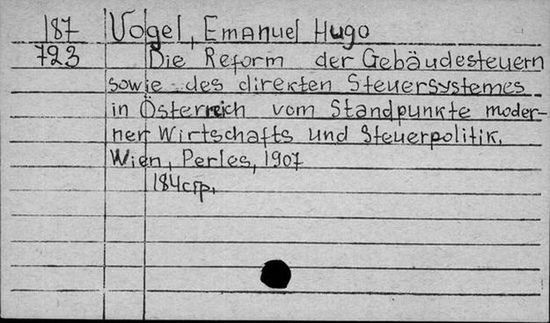 187 Vogel, Emanuel Hugo
723 Die Reform der Gebäudesteuern
sowie des direkten Steuersystemes
in Österreich vom Standpunkte moder-
ner Wirtschafts und Steuerpolitik.
Wien, Perles, 1907
184 стр.